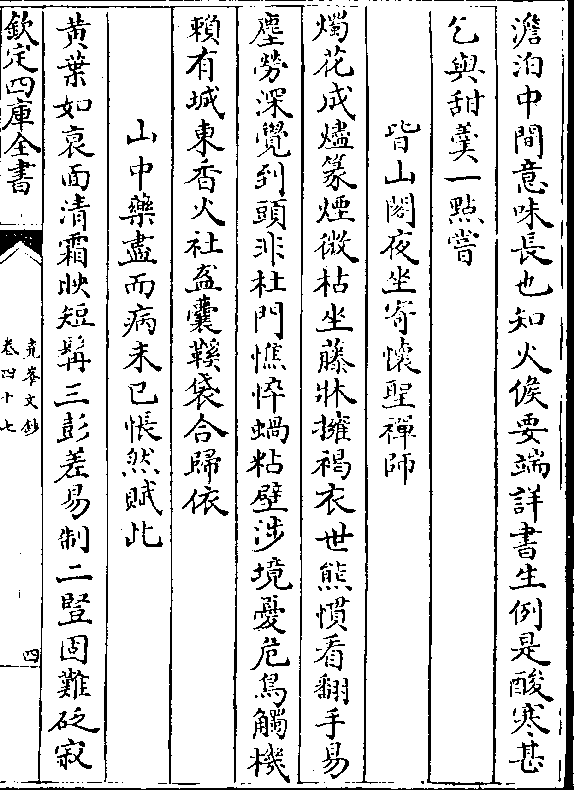 澹泊中間意味長也知火候要端詳書生例是酸寒甚
乞與甜羹一點嘗
皆山閣夜坐寄懷聖禪師
燭花成燼篆煙微枯坐藤牀擁褐衣世態慣看翻手易
塵勞深覺到頭非杜門憔悴蝸粘壁涉境憂危鳥觸機
賴有城東香火社盋囊鞵袋合歸依
山中藥盡而病未已悵然賦此
黃葉如衰面清霜映短髯三彭差易制二豎固難砭寂
欽定四庫全書
堯峯文鈔
卷四十七
四